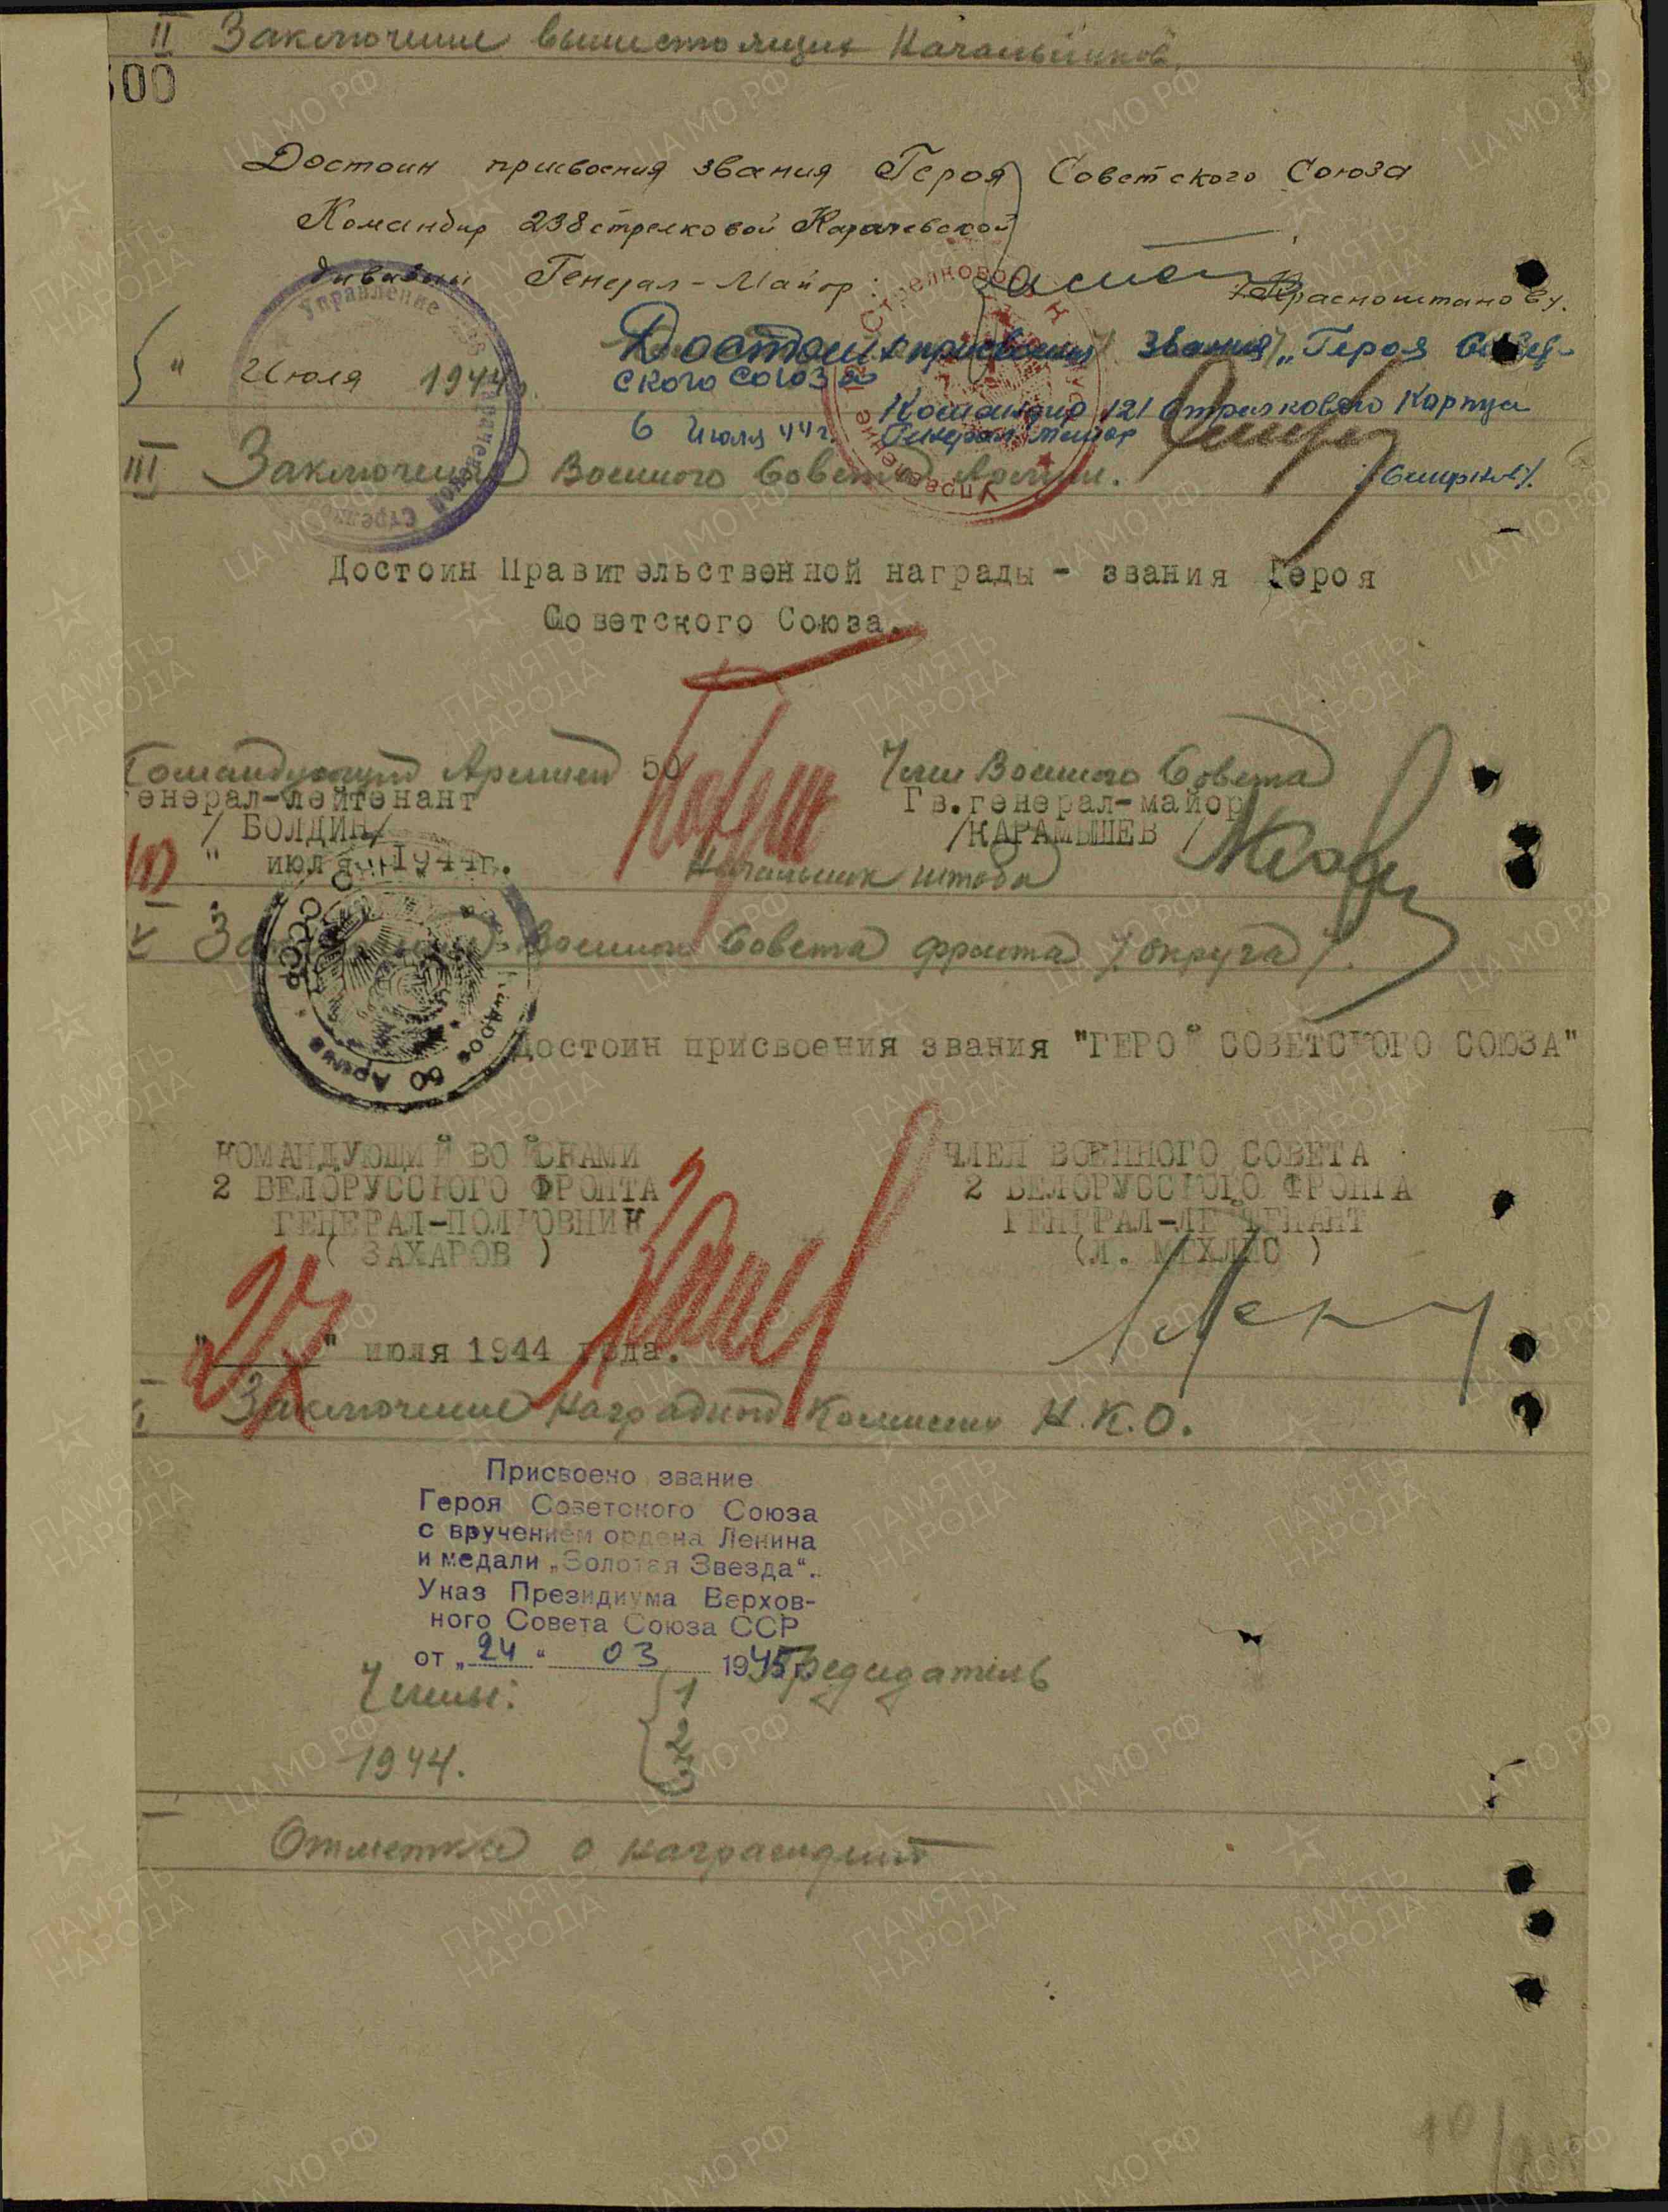 II Заключение вышестоящих Начальников.
500
Достоин присвоения звания Героя Советского Союза
Командир 238 стрелковой Карачевской
дивизии Генерал-Майор:
/Красноштанов/.
5 " Июля 1944 г.
Достоин присвоения звания „Героя Совет-
ского союза
Командир 121 стрелкового Корпуса
6 Июля 44 г. Генерал майор
/Смирнов/.
III Заключение Военного Совета Армии.
Достоин Правительственной награды - звания Героя
Советского Союза.
Командующий Армией 50
генерал-лейтенант
/ БОЛДИН/
" июля 1944г.
Член Военного Совета
Гв.генерал-майор
/КАРАМЫШЕВ /
Начальник штаба
Заключение Военного Совета фронта /округа/.
СССР
50 Армия
Достоин присвоения звания "ГЕРОЙ СОВЕТСКОГО СОЮЗА"
КОМАНДУЮЩИЙ ВОЙСКАМИ
2 БЕЛОРУССКОГО ФРОНТА
ГЕНЕРАЛ-ПОЛКОВНИК
( ЗАХАРОВ )
ЧЛЕН ВОЕННОГО СОВЕТА
2 БЕЛОРУССКОГО ФРОНТА
ГЕНЕРАЛ-ЛЕЙТЕНАНТ
(Л. МЕХЛИС )
" " июля 1944 года.
Заключение Наградной Комиссии Н.К.О.
Присвоено звание
Героя Советского Союза
с вручением ордена Ленина
и медали „Золотая Звезда“.
Указ Президиума Верхов-
ного Совета Союза ССР
от „24“ 03 1945 г.
Председатель
Члены: 1
2
3
1944.
Отметка о награждении
ПАМЯТЬ НАРОДА
ЦА МО РФ